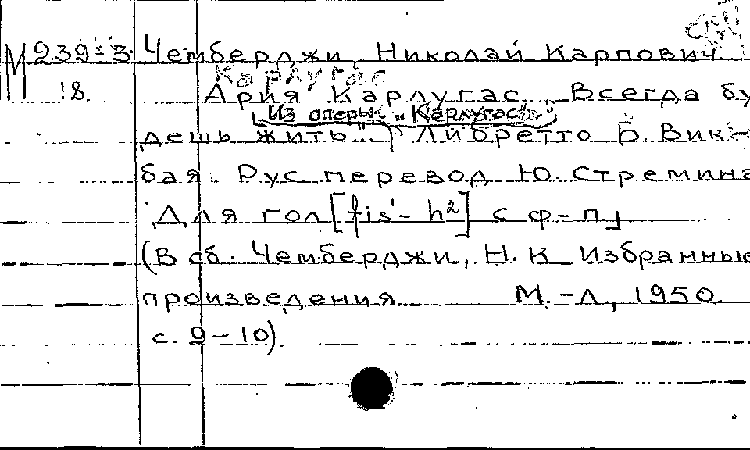 М 239-3 Чемберджи, Николай Карпович
18. Карлугас
Ария Карлугас „Всегда бу-
Из оперы „Карлугас“
дешь жить..." Либретто Б. Вик-
бая. Рус перевод Ю. Стремина
Для гол [fis'- h²] с ф-п
(В сб. Чемберджи, Н. К Избранные
произведения М.-Л, 1950
с. 9-10).